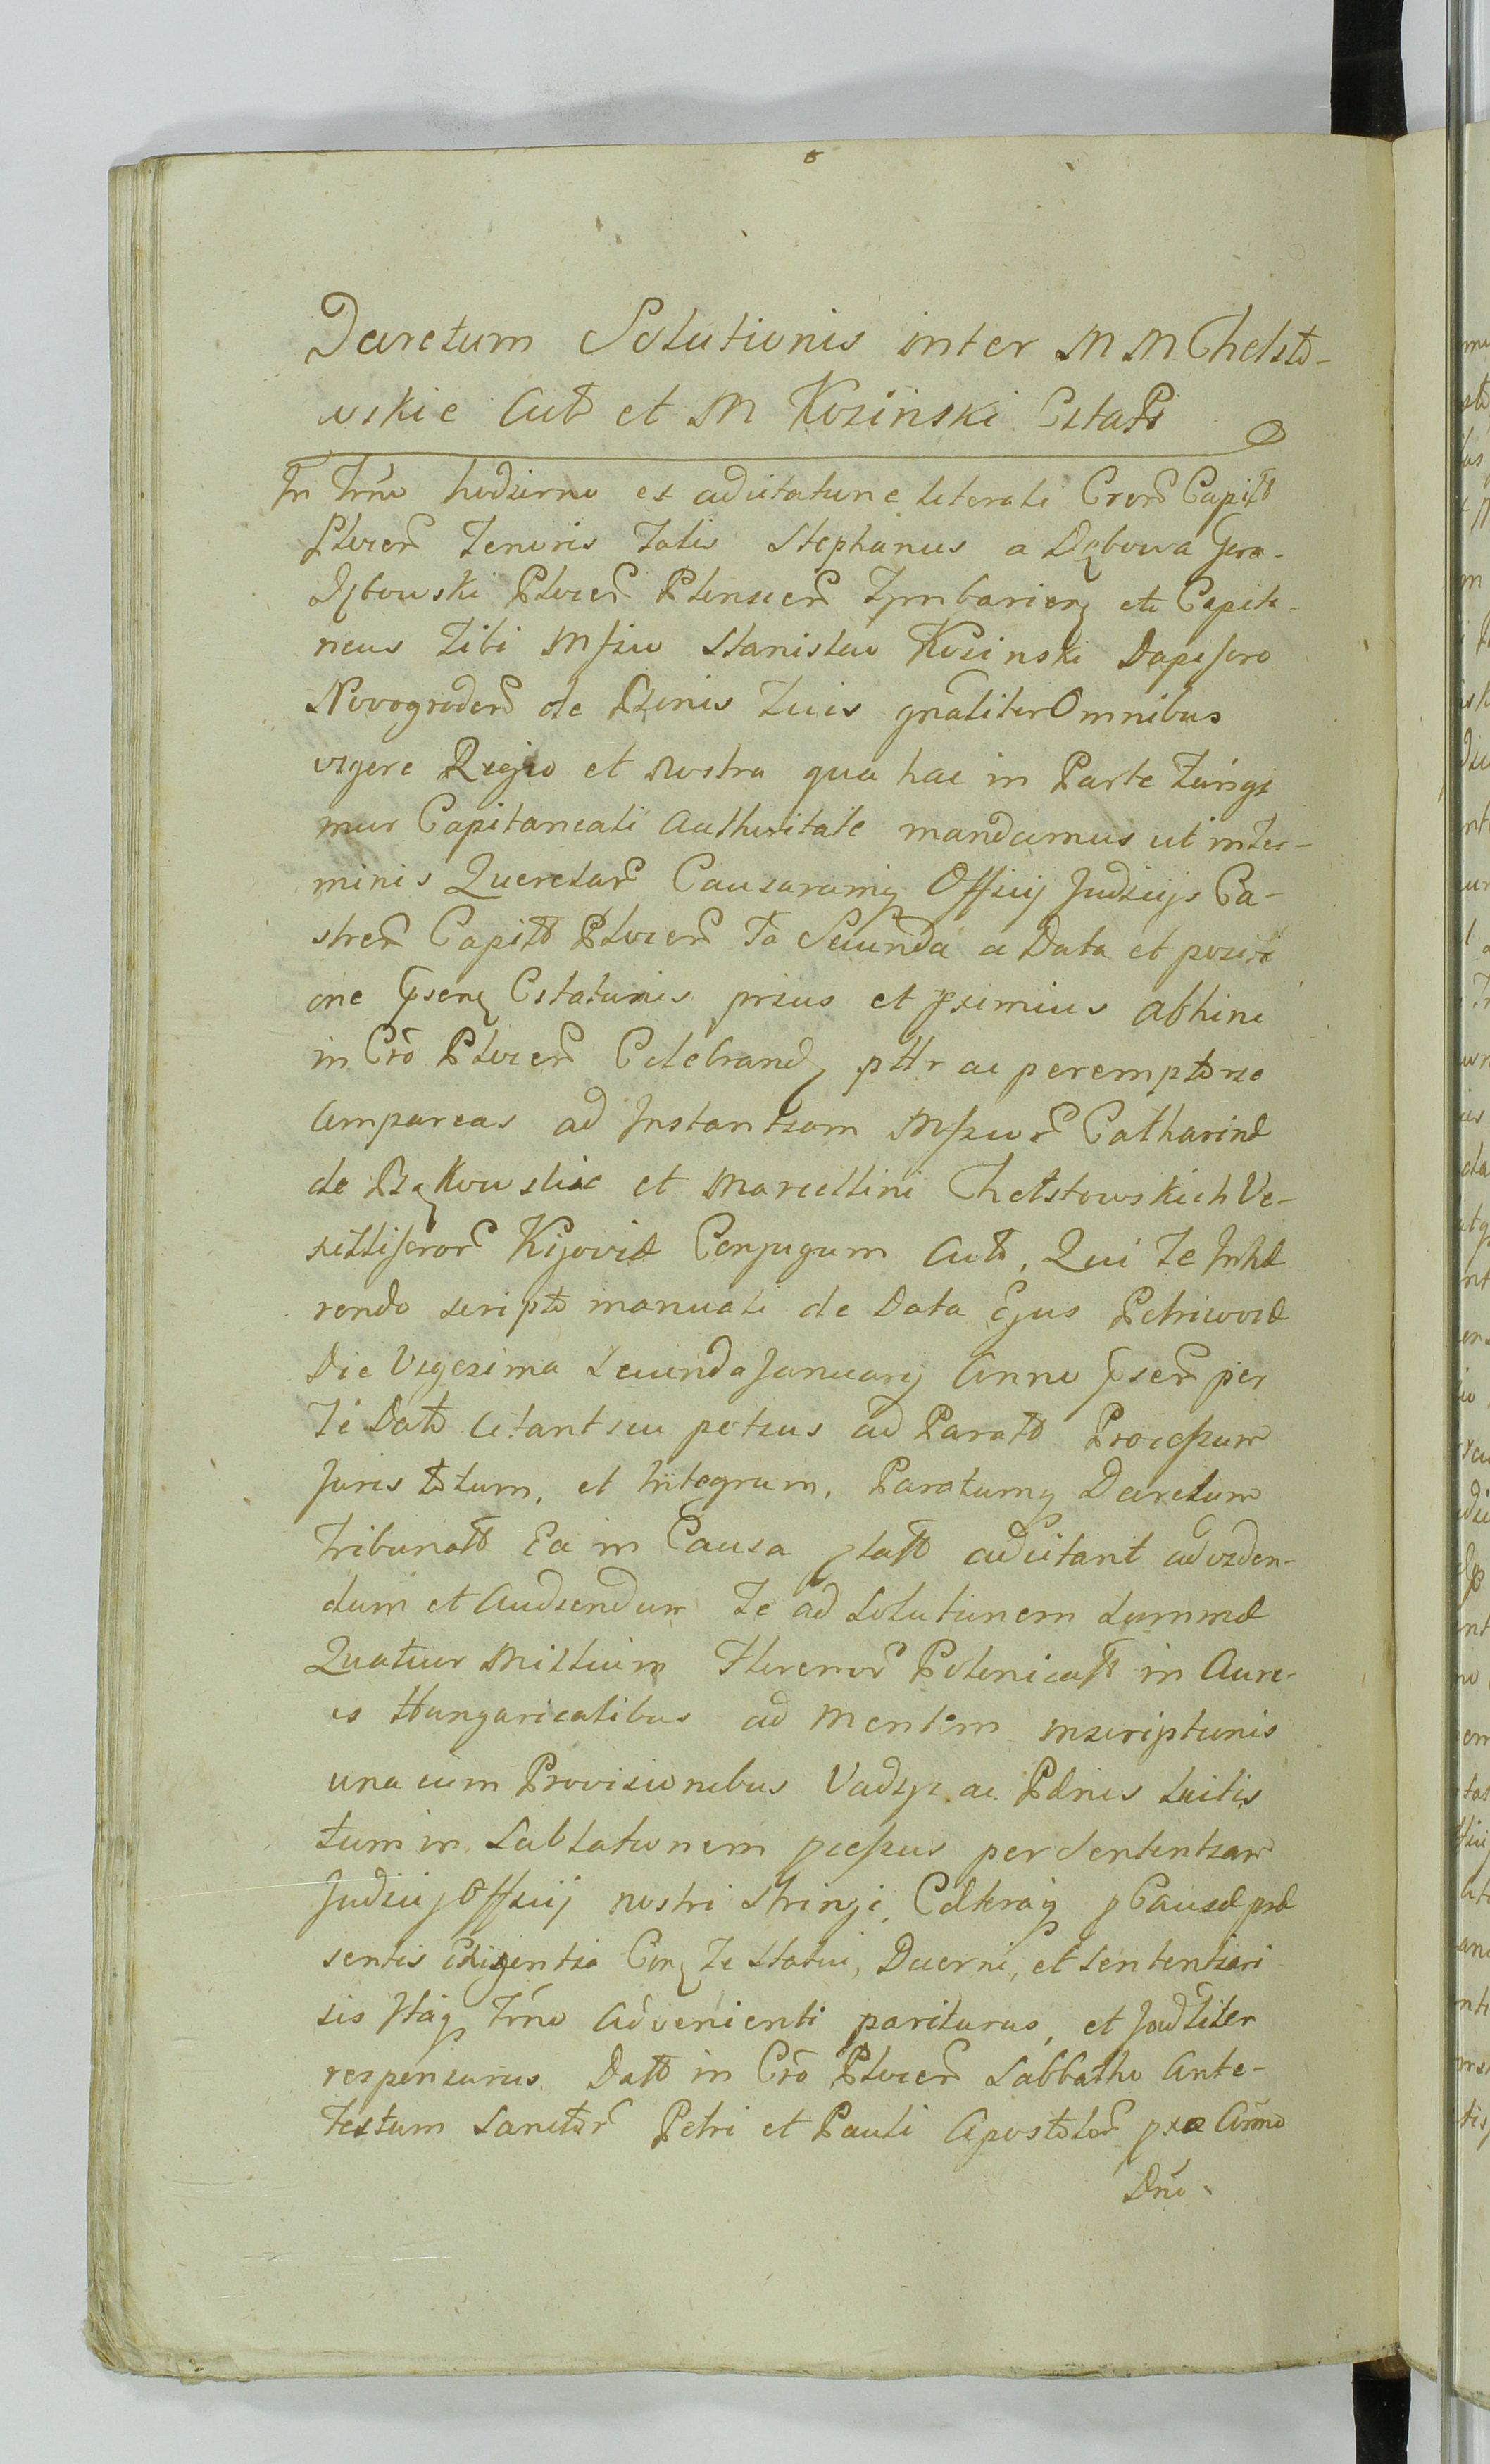 Decretum Solutionis inter M M Chełsto-
wskie Act et M Kosinski Citatt
In Trno hodierno ex adcitatione literali Cren Capitt
Plocen Tenoris Talis Stephanus a Dębowa Gora
Dębowski Plocen Plonscen Zymbarien etc Capita-
neus Tibi Mfico Stanislao Kosinski Dapifero
Novograden de Bonis Tuis gnaliter Omnibus
vigore Regia et Nostra qua hac in Parte fungi
mur Capitaneali Authoritate mandamus ut in Ter-
minis Querelar Causarumq Officij Judicijs Ca-
stren Capitt Plocen fa Secunda a Data et positi
one psenq Citationis prius et proximius abhinc
in Cro Plocen Celebrand, psltr ac peremptorie
Compareas ad Instantiam Mficor Catharinæ
de Bąkowskie et Marcellini Chełstowskich Ve-
xilliferor Kijoviæ Conjugum Act, Qui Te Inhæ
rendo scripto manuali de Data Ejus Petricoviæ
Die Vigesima Secunda January Anno psen per
Te Dato Citant seu potius ad Paratt Processum
Juris totum, et Integrum, Paratumq Decretum
Tribunatt Ea in Causa ptatt adcitant ad viden-
dum et Audiendum Te ad Solutionem Summæ
Quatuor Millium Florenor Polonicatt in Aure-
is Hungaricalibus ad Mentem Inscriptionis
una cum Provisionibus Vadijs ac Pænis Luitis
tum in Sublationem pcessus per Sententiam
Judicij Officij nostri Stringi, Cæteraq p Causæ præ
sentis Exigentia Con Te Statui, Decerni, et Sententiari
sis Itaq Trno Advenienti pariturus, et Judltiter
responsurus. Datt in Cro Plocen Sabbatho Ante-
Festum Sanctor Petri et Pauli Apostolor pxo Anno
Dno